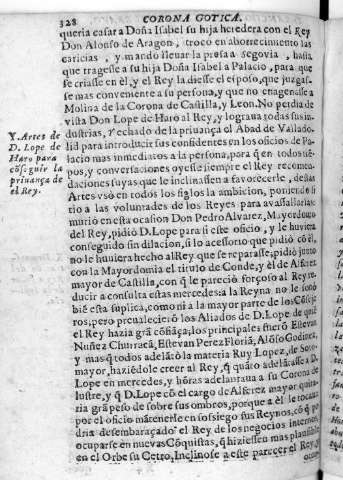 328 CORONA GOTICA.
queria casar a Doña Isabel su hija heredera con el Rey
Don Alonso de Aragon, trocò en aborrecimiento las
caricias, y mandò llevar la presa a segovia, hasta
que tragesse a su hija Doña Isabel a Palacio, para que
se criasse en èl, y el Rey la diesse el esposo, que juzgas-
se mas conveniente a su persona, y que no enagenasse a
Molina de la Corona de Castilla, y Leon. No perdia de
vista Don Lope de Haro al Rey, y lograua todas sus in-
dustrias, y echado de la priuança el Abad de Vallado-
lid para introducir sus confidentes en los oficios de Pa-
lacio mas inmediatos a la persona, para q̃ en todos tiẽ-
pos, y conversaciones oyesse siempre el Rey recomen-
daciones suyas que le inclinassen a favorecerle, destas
Artes vsò en todos los siglos la ambicion, poniendo si-
tio a las voluntades de los Reyes para avassallarlas:
muriò en esta ocasion Don Pedro Alvarez, Mayordomo
del Rey, pidiò D. Lope para si este oficio, y le huviera
conseguido sin dilacion, si lo accessorio que pidiò cõ èl,
no le huviera hecho al Rey que se reparasse; pidiò junto
con la Mayordomia el titulo de Conde, y èl de Alferez
mayor de Castilla, con q̃ le pareciò forçoso al Rey re-
ducir a consulta estas mercedes: a la Reyna no le sonò
biẽ esta suplica, como ni a la mayor parte de los Cõseje-
ros, pero prevalecierõ los Aliados de D. Lope de quiẽ
el Rey hazia grã cõfiãça; los principales fuerõ Estevan
Nuñez Churruca, Estevan Perez Floriã, Alõso Godinez,
y mas q̃ todos adelãtò la materia Ruy Lopez, de Soto-
mayor, haziẽdole creer al Rey, q̃ quãto adelãtasse a D.
Lope en mercedes, y hõras adelantaua a su Corona de
lustre, y q̃ D. Lope cõ el cargo de Alferez mayor quita-
ria grã peso de sobre sus ombros, porque a èl le tocaua
por el oficio mãtenerle en sosiego sus Reynos, cõ q̃ po-
dria desembaraçado el Rey de los negocios internos,
ocuparse en nuevas Cõquistas, q̃ hiziessen mas plausible
en el Orbe su Cetro. Inclinose a este parecer el Rey,
Y. Artes de
D. Lope de
Haro para
cõseguir la
priuança de
el Rey.